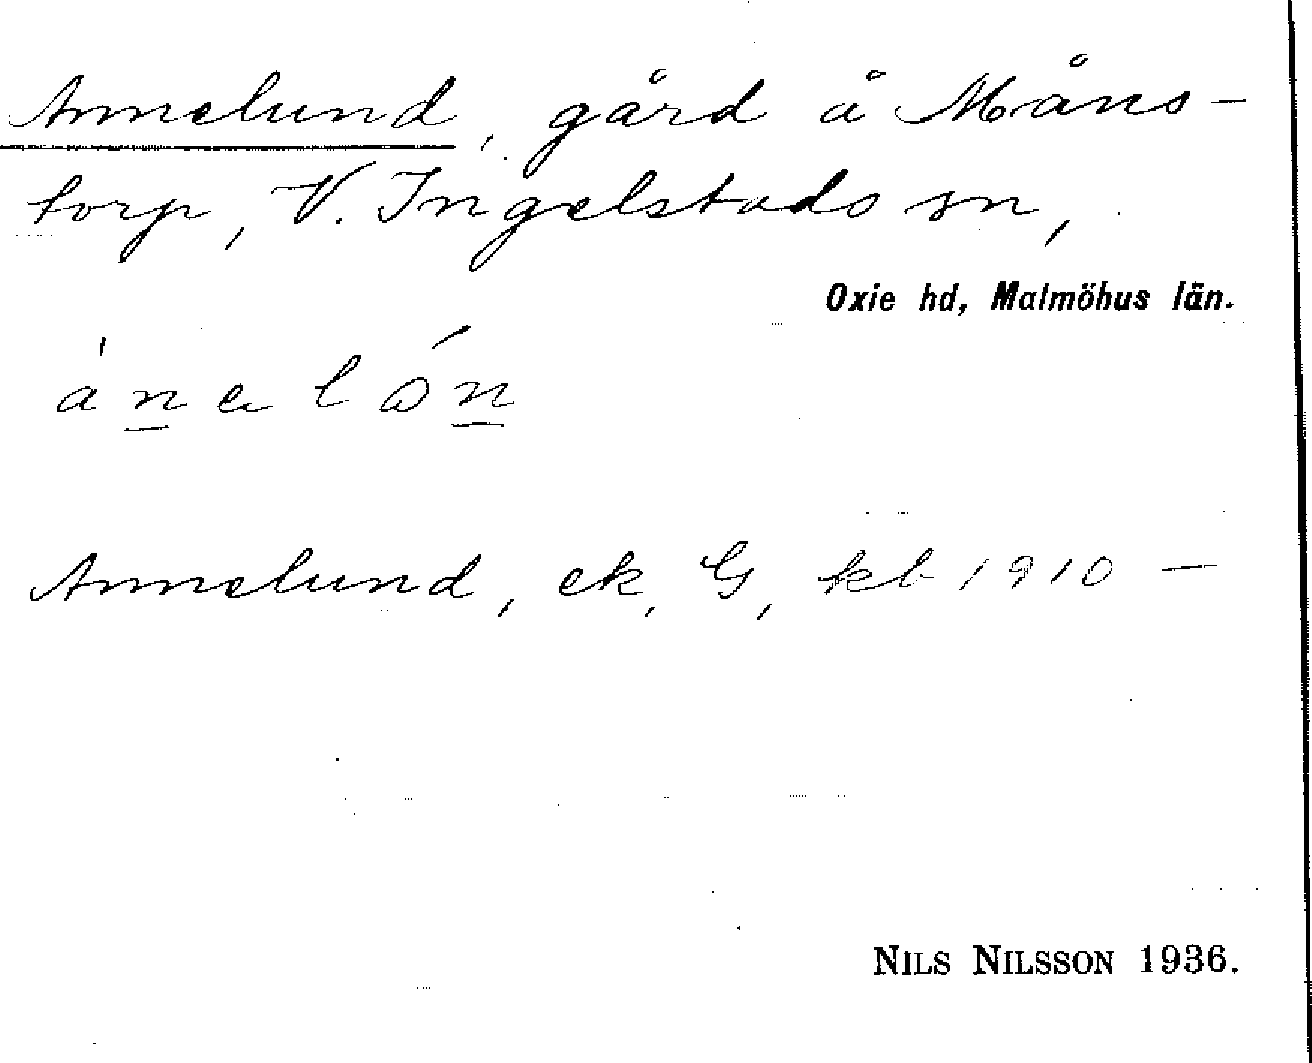 Annelund, gård å Måns-
torp, V. Ingelstads sn,
Oxie hd, Malmöhus län.
Annelund, ek, G, kb 1910 —
NILS NILSSON 1936.